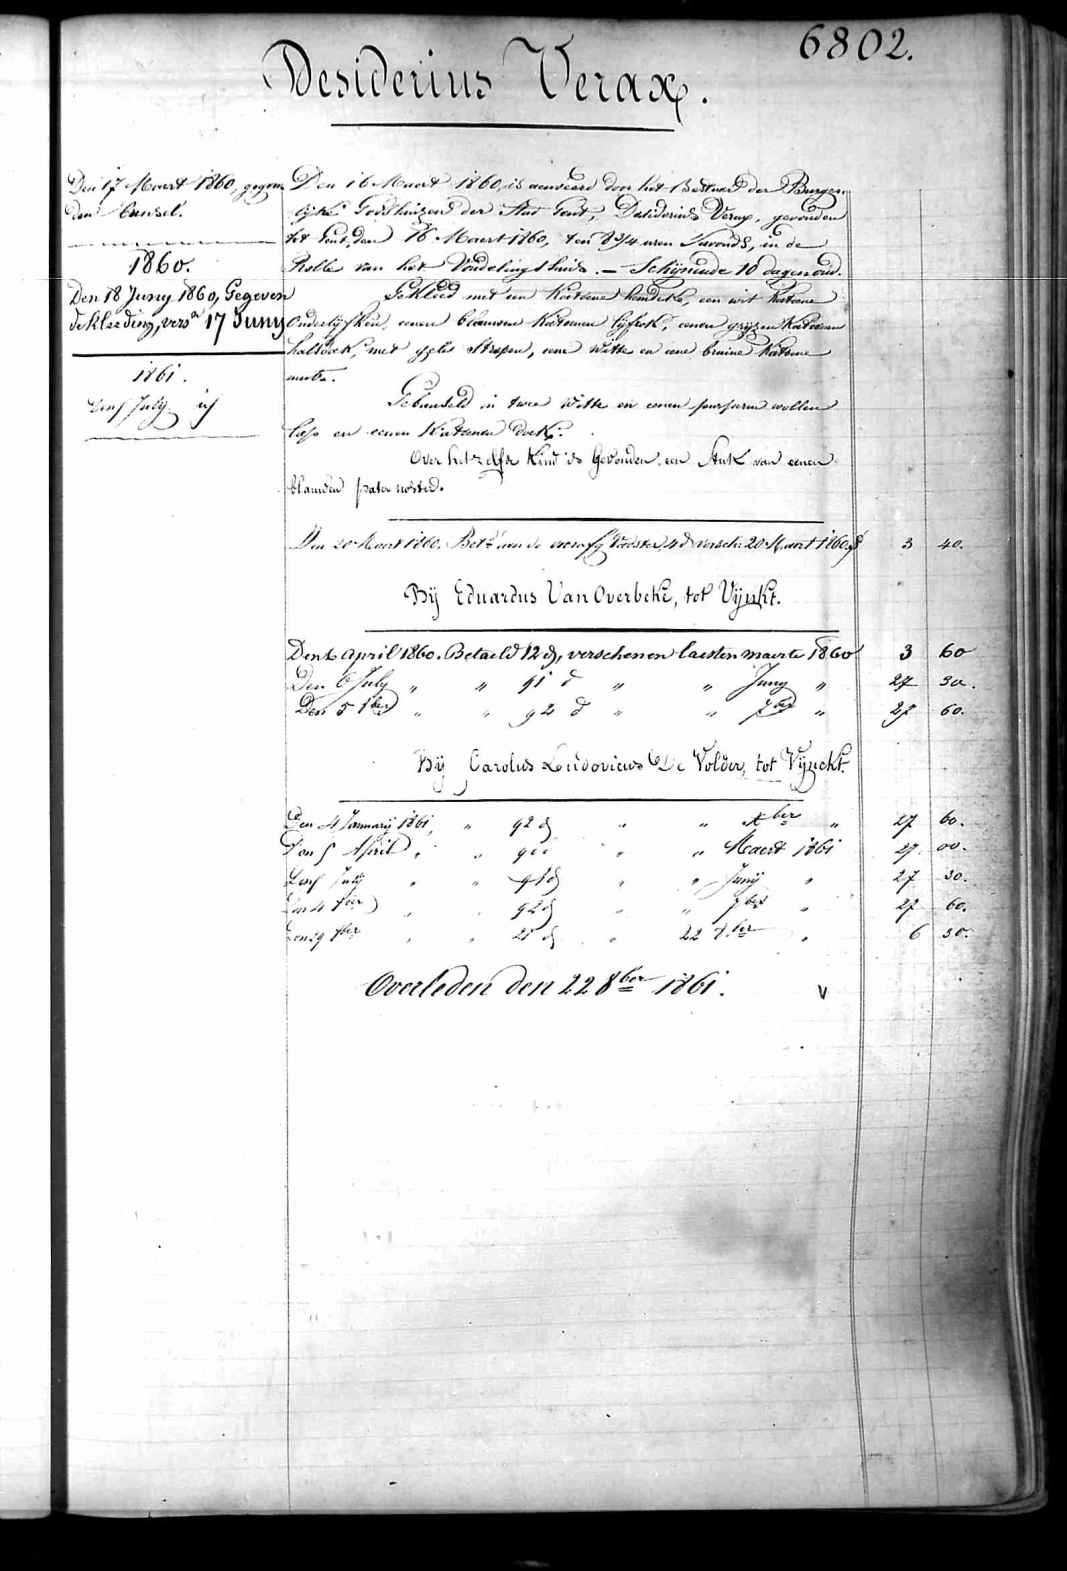 6802.
Desiderius Verax.
Den 17 Maert 1860, gegeven
den bunsel.
1860.
Den 18 Juny 1860, Gegeven
de kleeding, vers.n 17 Juny
1861.
Den 5 July id
Den 16 Maert 1860, is aenveerd door het Bestuer der Burger-
lyke Godshuizen der Stad Gent, Desiderius Verax, gevonden
tot Gent, den 16 Maert 1860, ten 8 3/4 uren 'savonds, in de
Rolle van het Vondelingshuis. — Schynende 10 dagen oud.
Gekleed met een Katoene hemdeke, een wit Katoene
Onderlyfken, eenen blauwen Katoenen lyfrok, eenen gryzen Katoenen
halsdoek, met gele strepen, eene witte en eene bruine Katoene
muts.
Gebunseld in twee witte en eenen wollen
lap en eenen Katoenen doek.
Over hetzelfde Kind is Gevonden een Stuk van eenen
blauwen pater noster.
Den 20 Maert 1860. Bet.d aen de Voedster 4 d versch. 20 Maert 1860 3 40.
Bij Eduardus Van Overbeke, tot Vijnkt.
Den 6 April 1860. Betaeld 12 d, verschenen laesten maerte 1860 3 60
Den 6 July " " 91 d " " Juny " 27 30.
Den 5 8ber " " 92 d " " 7ber " 27 60.
Bij Carolus Ludovicus De Volder, tot Vijnckt.
Den 4 January 1861, " 92 d " " Xber " 27 60.
Den 5 April " " 90 d " " Maert 1861 27 00.
Den 5 July " " 91 d " " Junij " 27 30.
Den 4 8ber " " 92 d " " 7ber " 27 60.
Den 29 8ber " " 21 d " 22 8ber " 6 30.
Overleden den 22 8ber 1861. v